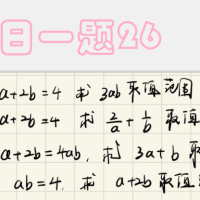 日一题26
a+2b=4 求 3ab 取值范围
a+2b=4 求 2/a + 1/b 取值
a+2b=4ab, 求 3a+b 取
ab=4, 求 a+2b 取值